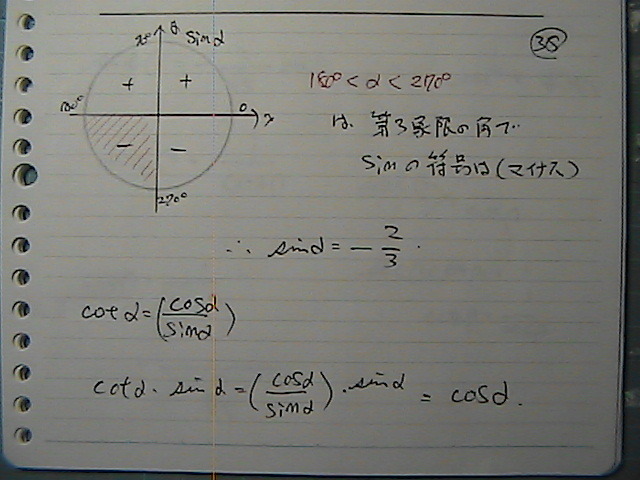 38
y sin α
+ +
180° 0 x
− −
270°
180° < α < 270°
は、第3象限の角で
sinの符号は(マイナス)
∴ sin α = − 2/3 .
cot α = (cos α / sin α)
cot α · sin α = (cos α / sin α) · sin α = cos α .